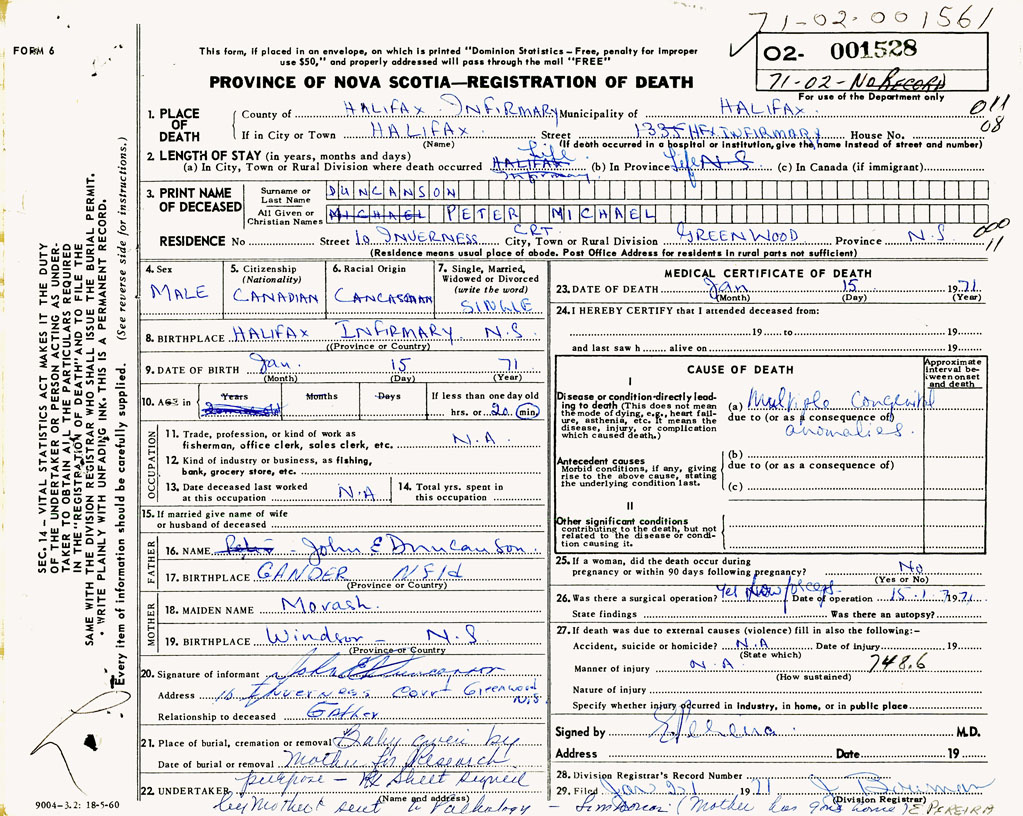 71-02-001561
FORM 6
This form, if placed in an envelope, on which is printed "Dominion Statistics – Free, penalty for improper
use $50," and properly addressed will pass through the mail "FREE"
02- 001528
71-02-No RECORD
For use of the Department only
PROVINCE OF NOVA SCOTIA—REGISTRATION OF DEATH
1. PLACE OF DEATH
County of HALIFAX INFIRMARY Municipality of HALIFAX
011
08
If in City or Town HALIFAX Street 1335 HFX INFIRMARY House No.
(Name) (If death occurred in a hospital or institution, give the name instead of street and number)
2. LENGTH OF STAY (in years, months and days) Life
(a) In City, Town or Rural Division where death occurred HALIFAX Infirmary (b) In Province Life N S (c) In Canada (if immigrant)
3. PRINT NAME OF DECEASED
Surname or Last Name DUNCANSON
All Given or Christian Names MICHAEL PETER MICHAEL
RESIDENCE No Street 10 INVERNESS CRT. City, Town or Rural Division GREENWOOD Province N.S
000
11
(Residence means usual place of abode. Post Office Address for residents in rural parts not sufficient)
4. Sex
MALE
5. Citizenship
(Nationality)
CANADIAN
6. Racial Origin
7. Single, Married,
Widowed or Divorced
(write the word)
SINGLE
8. BIRTHPLACE HALIFAX INFIRMARY N.S
((Province or Country)
9. DATE OF BIRTH Jan. 15 71
(Month) (Day) (Year)
10. AGE in Years Months Days If less than one day old
hrs. or 20 (min)
OCCUPATION
11. Trade, profession, or kind of work as
fisherman, office clerk, sales clerk, etc. N.A
12. Kind of industry or business, as fishing,
bank, grocery store, etc.
13. Date deceased last worked
at this occupation N.A
14. Total yrs. spent in
this occupation
15. If married give name of wife
or husband of deceased
FATHER
16. NAME - John E Duncanson
17. BIRTHPLACE GANDER Nfld
(Province or Country)
MOTHER
18. MAIDEN NAME Morash
19. BIRTHPLACE Windsor - N.S
(Province or Country
20. Signature of informant John E Duncanson
Address 10 Inverness Court Greenwood N.S.
Relationship to deceased Father
21. Place of burial, cremation or removal Baby given by
Date of burial or removal Mother for Research
purpose – Sheet signed
22. UNDERTAKER by Mother & sent to Pathology - (Mother has gone home) E. PEREIRA
(Name and address)
MEDICAL CERTIFICATE OF DEATH
23. DATE OF DEATH Jan 15 1971
(Month) (Day) (Year)
24. I HEREBY CERTIFY that I attended deceased from:
19 to 19
and last saw h alive on 19
CAUSE OF DEATH
Approximate
interval be-
tween onset
and death
I
Disease or condition directly lead-
ing to death (This does not mean
the mode of dying, e.g., heart fail-
ure, asthenia, etc. It means the
disease, injury, or complication
which caused death.)
(a) Multiple Congenital
due to (or as a consequence of)
anomalies.
Antecedent causes
Morbid conditions, if any, giving
rise to the above cause, stating
the underlying condition last.
(b)
due to (or as a consequence of)
(c)
II
Other significant conditions
contributing to the death, but not
related to the disease or condi-
tion causing it.
25. If a woman, did the death occur during
pregnancy or within 90 days following pregnancy? No
(Yes or No)
26. Was there a surgical operation? Yes low forceps Date of operation 15.1.1971
State findings Was there an autopsy?
27. If death was due to external causes (violence) fill in also the following:–
Accident, suicide or homicide? N.A Date of injury 19
(State which)
Manner of injury N.A 748.6
(How sustained)
Nature of injury
Specify whether injury occurred in industry, in home, or in public place
Signed by M.D.
Address Date 19
28. Division Registrar's Record Number
29. Filed Jan 1971
(Division Registrar)
SEC. 14 – VITAL STATISTICS ACT MAKES IT THE DUTY
OF THE UNDERTAKER OR PERSON ACTING AS UNDER-
TAKER TO OBTAIN ALL THE PARTICULARS REQUIRED
IN THE "REGISTRATION OF DEATH" AND TO FILE THE
SAME WITH THE DIVISION REGISTRAR WHO SHALL ISSUE THE BURIAL PERMIT.
• WRITE PLAINLY WITH UNFADING INK. THIS IS A PERMANENT RECORD.
Every item of information should be carefully supplied. (See reverse side for instructions.)
9004-3.2: 18-5-60